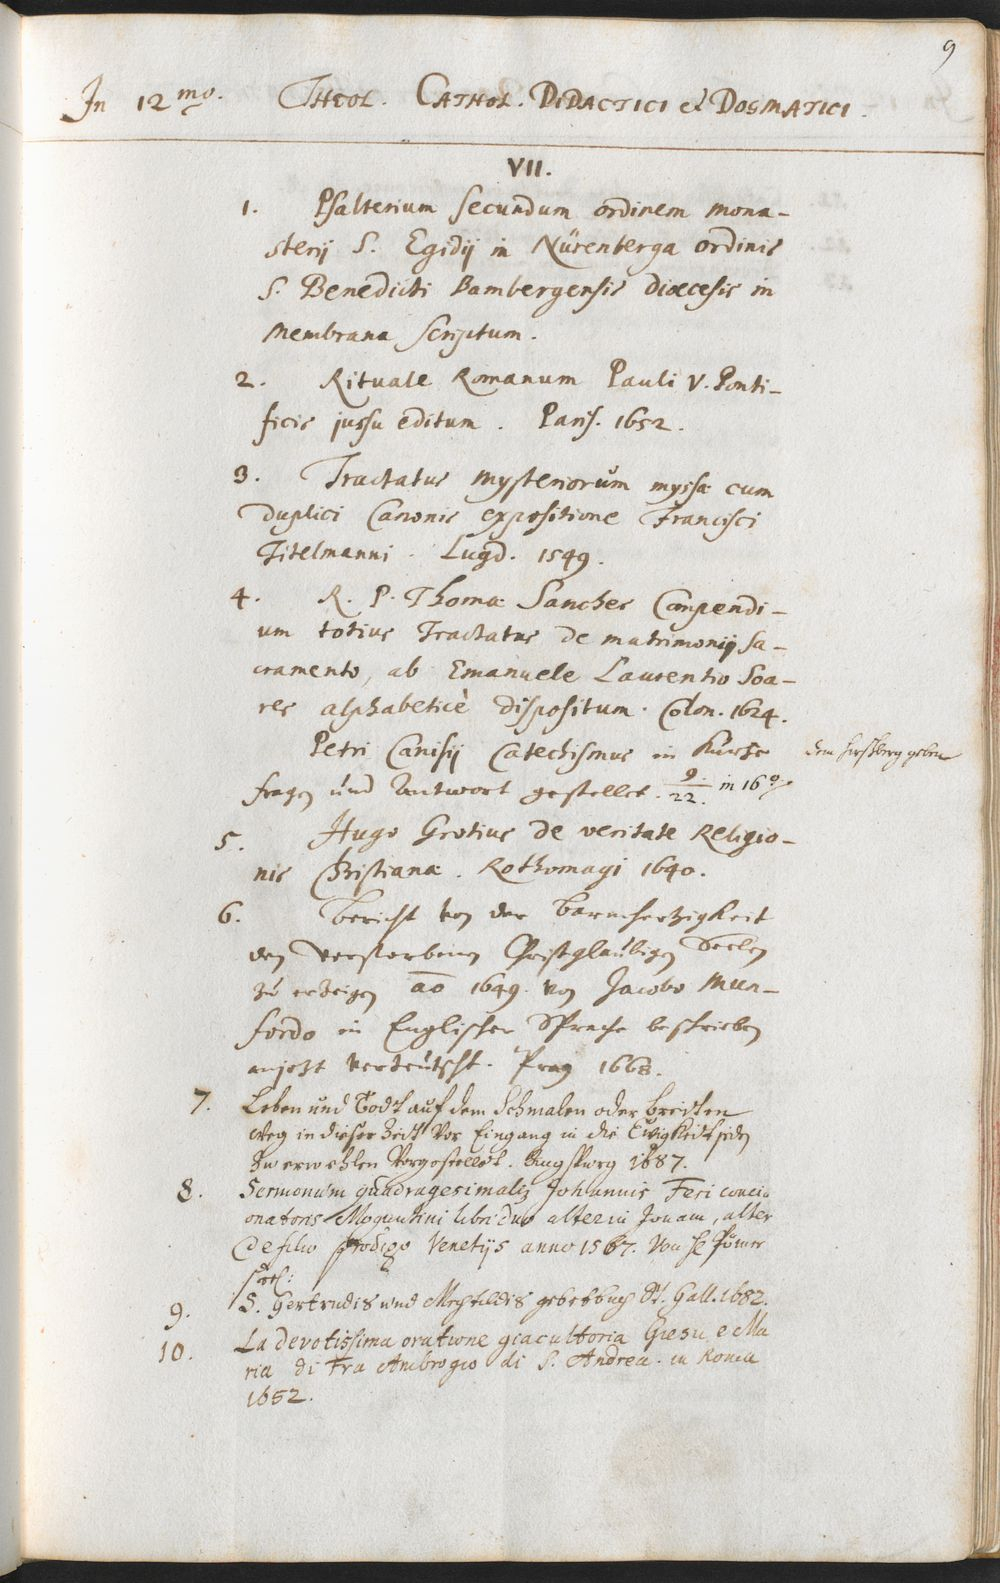 9
In 12mo. THEOL. CATHOL. DIDACTICI et DOGMATICI.
VII.
1. Psalterium secundum ordinem mona-
sterij S. Egidij in Nürenberga ordinis
S. Benedicti Bambergensis dioecesis in
membrana scriptum.
2. Rituale Romanum Pauli V. Ponti-
ficis jussu editum. Paris. 1652.
3. Tractatus mysteriorum myssæ cum
duplici Canonis expositione Francisci
Titelmanni. Lugd. 1549.
4. R. P. Thomæ Sanches Compendi-
um totius Tractatus de matrimonij Sa-
cramento, ab Emanuele Laurentio Soa-
res alphabeticè dispositum. Colon. 1624.
Petri Canisij Catechismus in kurtze
dem geben
fragen und Antwort gestellet. 9/22. in 16o
5. Hugo Grotius de veritate Religio-
nis Christianæ. Rothomagi 1640.
6. Bericht von der Barmhertzigkeit
den verstorbenen Christglaubigen Seelen
zu erzeigen ao 1649. von Jacobo Mun-
fordo in Englischer Sprache beschrieben
anjetzt verteutscht. Prag 1668.
7. Leben und Todt auf dem Schmalen oder breidten
weg in dieser Zeidt Vor Eingang in die Ewigkeidt
Zu erwehlen Vorgestelledt. Augspurg 1687.
8. Sermonum quadragesimaliū Johannis Feri concio
onatoris Moguntini libri duo alter in Jonam, alter
de filio prodigo Venetijs anno 1567. Von H
seel:
9. S. Gertrudis und Mechtildis gebetbuch St. Gall. 1682.
10. La devotissima oratione giacultoria Giesu, e Ma
ria di Fra Ambrogio di S. Andrea. in Roma
1652.